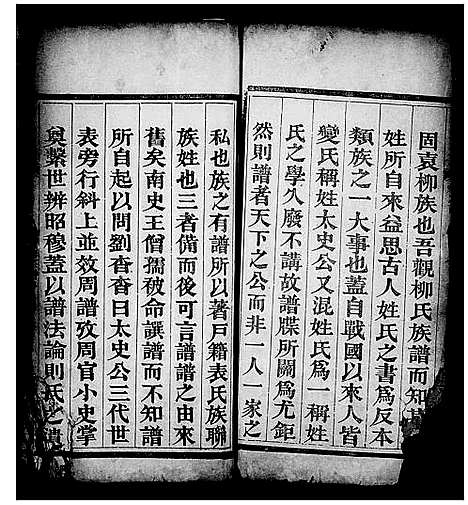 固袁柳族也吾觀柳氏族譜而知其
姓所自來益思古人姓氏之書爲反本
類族之一大事也蓋自戰國以來人皆
變氏稱姓太史公又混姓氏爲一稱姓
氏之學久廢不講故譜牒所關爲尤鉅
然則譜者天下之公而非一人一家之
私也族之有譜所以著戸籍表氏族聯
族姓也三者備而後可言譜譜之由來
舊矣南史王僧孺被命譔譜而不知譜
所自起以問劉杳杳曰太史公三代世
表旁行斜上並效周譜攷周官小史掌
奠繫世辨昭穆蓋以譜法論則氏之遺